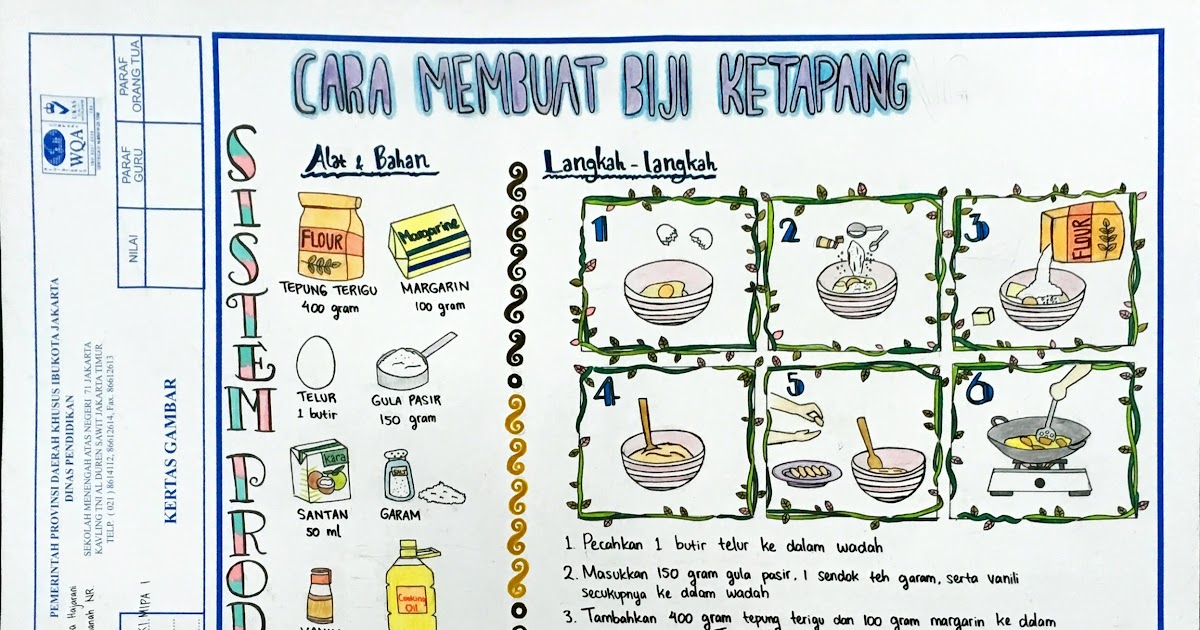 PARAF
ORANG TUA
PARAF
GURU
NILAI
WQA
UKAS
PEMERINTAH PROVINSI DAERAH KHUSUS IBUKOTA JAKARTA
DINAS PENDIDIKAN
SEKOLAH MENENGAH ATAS NEGERI 71 JAKARTA
KAVLING TNI AL DUREN SAWIT JAKARTA TIMUR
TELP. ( 021 ) 8614112, 86612614, Fax. 86612613
KERTAS GAMBAR
Hajarani
anah NR.
MIPA 1
CARA MEMBUAT BIJI KETAPANG
SISTEM PROD
Alat & Bahan
FLOUR
TEPUNG TERIGU
400 gram
Margarine
MARGARIN
100 gram
TELUR
1 butir
GULA PASIR
150 gram
kara
SANTAN
50 ml
SALT
GARAM
Cooking
Oil
Langkah - langkah
1
2
3
FLOUR
4
5
6
1. Pecahkan 1 butir telur ke dalam wadah
2. Masukkan 150 gram gula pasir, 1 sendok teh garam, serta vanili
secukupnya ke dalam wadah
3. Tambahkan 400 gram tepung terigu dan 100 gram margarin ke dalam